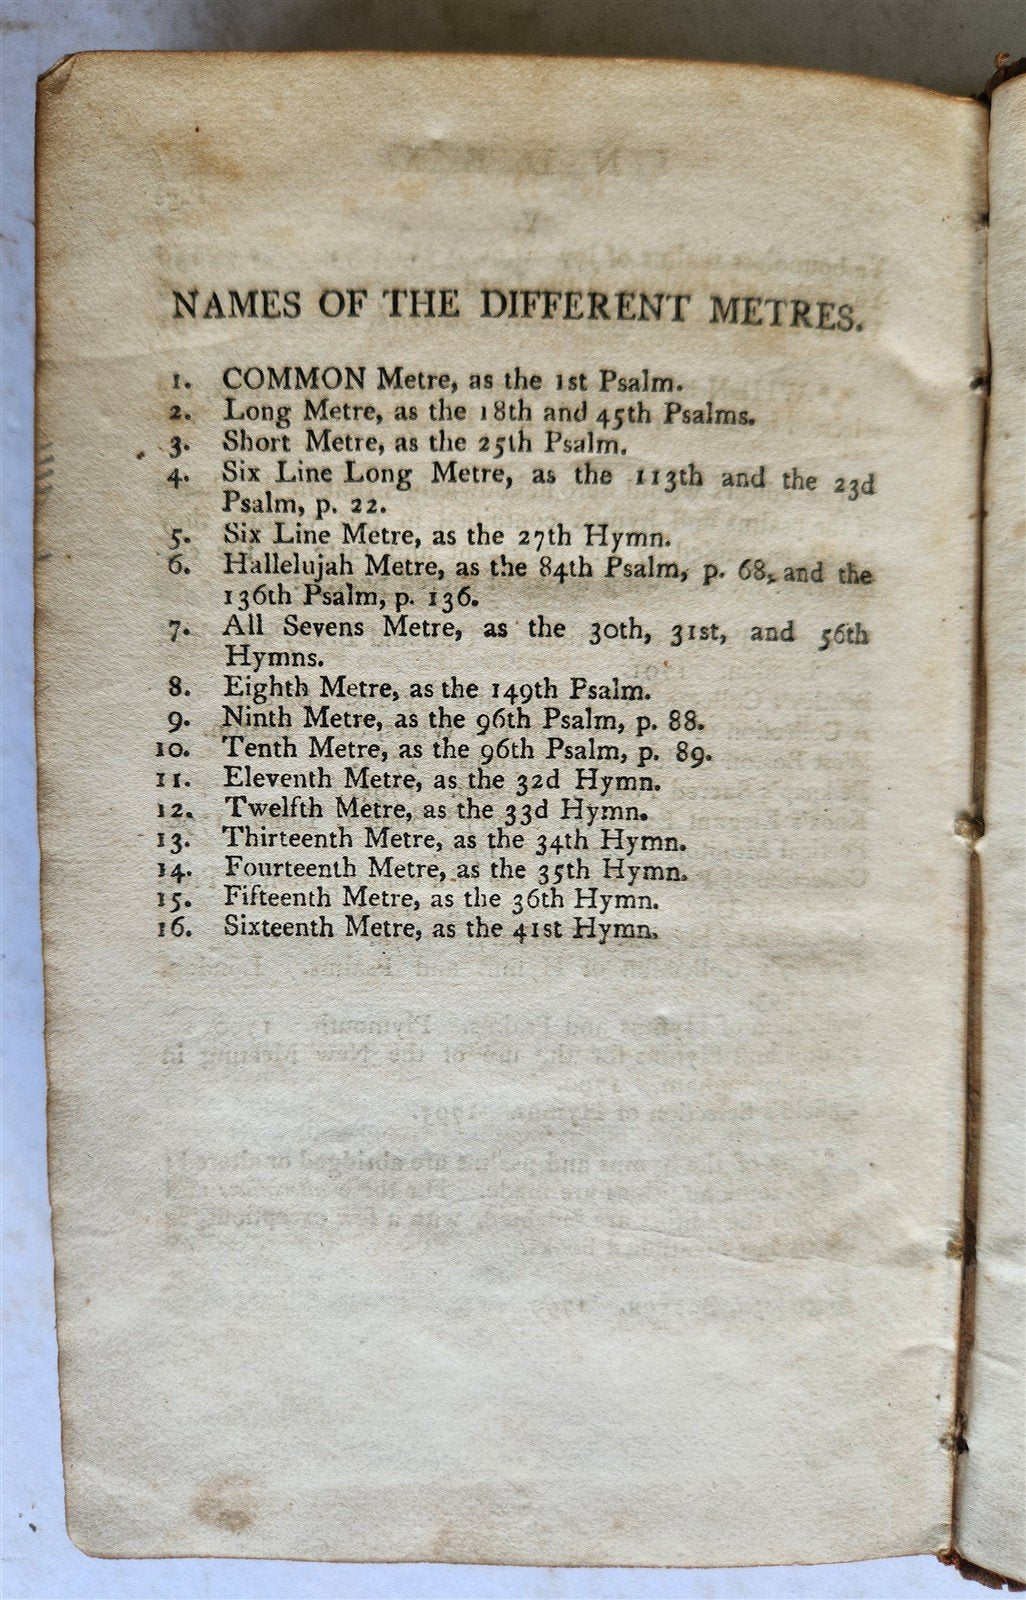 NAMES OF THE DIFFERENT METRES.
1. COMMON Metre, as the 1st Psalm.
2. Long Metre, as the 18th and 45th Psalms.
3. Short Metre, as the 25th Psalm.
4. Six Line Long Metre, as the 113th and the 23d
Psalm, p. 22.
5. Six Line Metre, as the 27th Hymn.
6. Hallelujah Metre, as the 84th Psalm, p. 68, and the
136th Psalm, p. 136.
7. All Sevens Metre, as the 30th, 31st, and 56th
Hymns.
8. Eighth Metre, as the 149th Psalm.
9. Ninth Metre, as the 96th Psalm, p. 88.
10. Tenth Metre, as the 96th Psalm, p. 89.
11. Eleventh Metre, as the 32d Hymn.
12. Twelfth Metre, as the 33d Hymn.
13. Thirteenth Metre, as the 34th Hymn.
14. Fourteenth Metre, as the 35th Hymn.
15. Fifteenth Metre, as the 36th Hymn.
16. Sixteenth Metre, as the 41st Hymn.